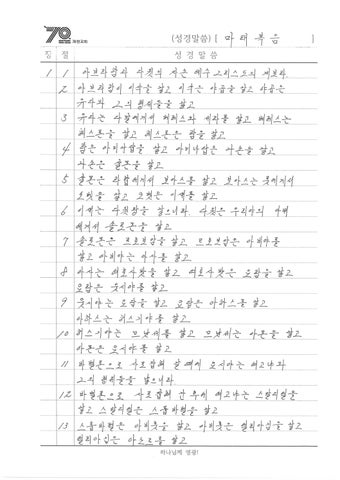 70 과천교회
(성경말씀) [ 마태복음 ]
장 절 성 경 말 씀
1 1 아브라함과 다윗의 자손 예수 그리스도의 계보라
2 아브라함이 이삭을 낳고 이삭은 야곱을 낳고 야곱은
유다와 그의 형제들을 낳고
3 유다는 다말에게서 베레스와 세라를 낳고 베레스는
헤스론을 낳고 헤스론은 람을 낳고
4 람은 아미나답을 낳고 아미나답은 나손을 낳고
나손은 살몬을 낳고
5 살몬은 라합에게서 보아스를 낳고 보아스는 룻에게서
오벳을 낳고 오벳은 이새를 낳고
6 이새는 다윗왕을 낳으니라 다윗은 우리야의 아내
에게서 솔로몬을 낳고
7 솔로몬은 르호보암을 낳고 르호보암은 아비야를
낳고 아비야는 아사를 낳고
8 아사는 여호사밧을 낳고 여호사밧은 요람을 낳고
요람은 웃시야를 낳고
9 웃시야는 요담을 낳고 요담은 아하스를 낳고
아하스는 히스기야를 낳고
10 히스기야는 므낫세를 낳고 므낫세는 아몬을 낳고
아몬은 요시야를 낳고
11 바벨론으로 사로잡혀 갈 때에 요시야는 여고냐와
그의 형제들을 낳으니라
12 바벨론으로 사로잡혀 간 후에 여고냐는 스알디엘을
낳고 스알디엘은 스룹바벨을 낳고
13 스룹바벨은 아비훗을 낳고 아비훗은 엘리아김을 낳고
엘리아김은 아소르를 낳고
하나님께 영광!